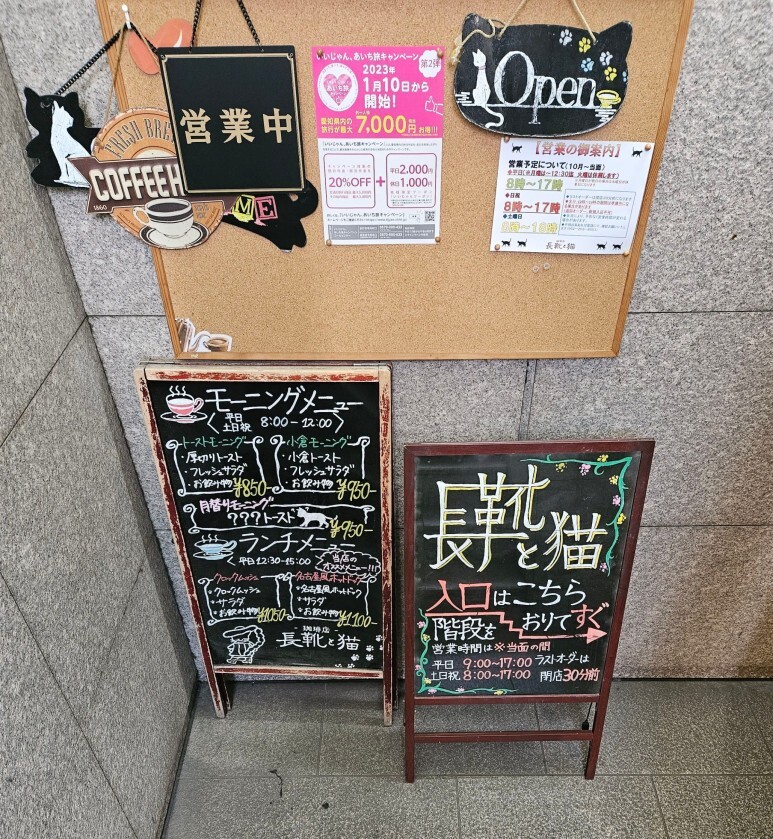 営業中
FRESH BREWED
COFFEE H
1860
ME
いじゃん、あいち旅キャンペーン
第2弾
2023年
1月10日から
開始!
愛知県内の
旅行が最大 7,000円 お得!!!
20%OFF
+
平日2,000円
休日1,000円
Open
【営業の御案内】
営業予定について(10月~当面)
8時~17時
●日祝
8時~17時
●土曜日
8時~18時
長靴と猫
モーニングメニュー
平日
土日祝
8:00-12:00
トーストモーニング
・厚切りトースト
・フレッシュサラダ
・お飲み物 ¥850-
小倉モーニング
・小倉トースト
・フレッシュサラダ
・お飲み物 ¥950-
月替りモーニング
???トースト
¥950-
ランチメニュー
平日12:30-15:00
当店の
オススメメニュー!!!
クロックムッシュ
・クロックムッシュ
・サラダ
・お飲み物 ¥1050-
名古屋風ホットドッグ
・名古屋風ホットドック
・サラダ
・お飲み物 ¥1100-
珈琲店
長靴と猫
長靴と猫
入口はこちら
階段をおりてすぐ
営業時間は※当面の間
平日 9:00~17:00
土日祝 8:00~17:00
ラストオーダーは
閉店30分前